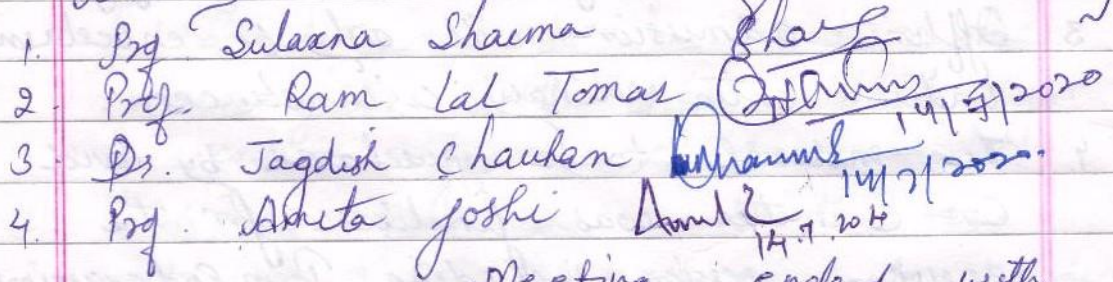 1. Prof Sulaxna Sharma
2. Prof. Ram Lal Tomar 14/7/2020
3. Dr. Jagdish Chauhan 14/7/2020.
4. Prof. Amita Joshi 14.7.20
Meeting ended with